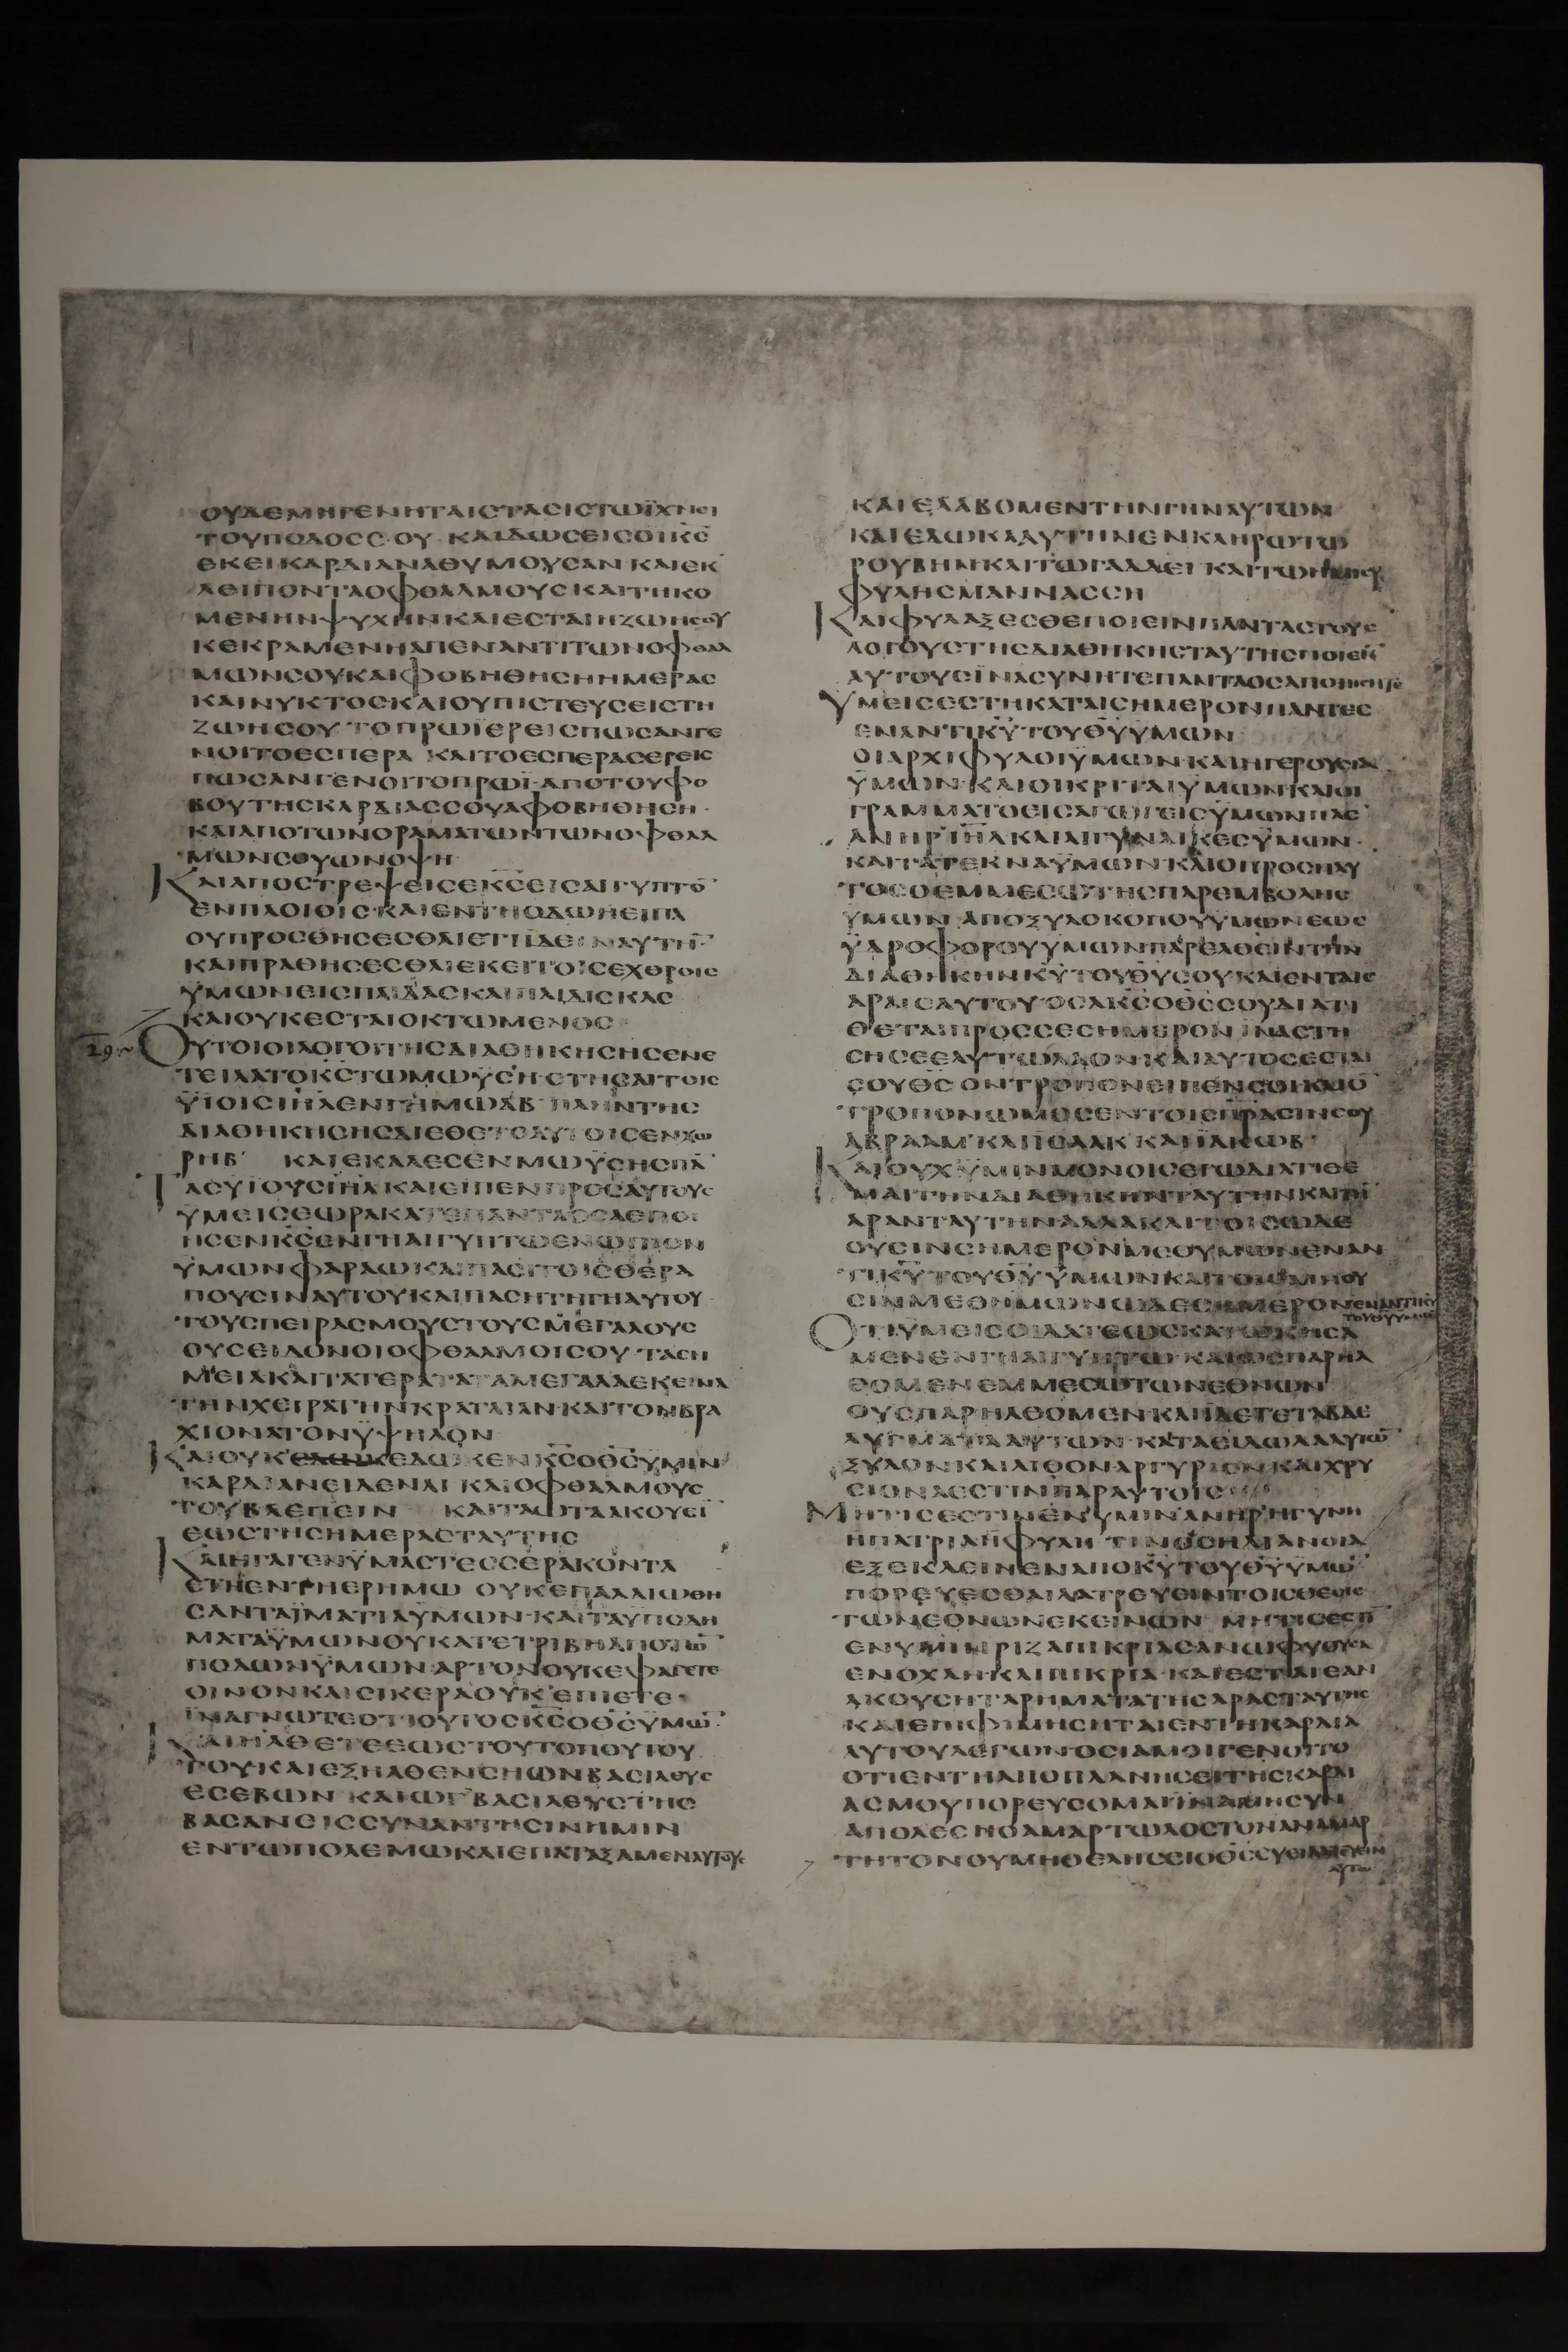 ΟΥΔΕΜΗΓΕΝΗΤΑΙΣΤΑΣΙΣΤΩΪΧΝΕΙ
ΤΟΥΠΟΔΟΣΣΟΥ ΚΑΙΔΩΣΕΙΣΟΙΚ̅Σ̅
ΕΚΕΙΚΑΡΔΙΑΝΑΘΥΜΟΥΣΑΝ ΚΑΙΕΚ
ΛΕΙΠΟΝΤΑΟΦΘΑΛΜΟΥΣΚΑΙΤΗΚΟ
ΜΕΝΗΝΨΥΧΗΝΚΑΙΕΣΤΑΙΗΖΩΗΣΟΥ
ΚΕΚΡΑΜΕΝΗΑΠΕΝΑΝΤΙΤΩΝΟΦΘΑΛ
ΜΩΝΣΟΥΚΑΙΦΟΒΗΘΗΣΗΗΜΕΡΑΣ
ΚΑΙΝΥΚΤΟΣΚΑΙΟΥΠΙΣΤΕΥΣΕΙΣΤΗ
ΖΩΗΣΟΥ ΤΟΠΡΩΪΕΡΕΙΣΠΩΣΑΝΓΕ
ΝΟΙΤΟΕΣΠΕΡΑ ΚΑΙΤΟΕΣΠΕΡΑΣΕΡΕΙΣ
ΠΩΣΑΝΓΕΝΟΙΤΟΠΡΩΪ·ΑΠΟΤΟΥΦΟ
ΒΟΥΤΗΣΚΑΡΔΙΑΣΣΟΥΑΦΟΒΗΘΗΣΗ·
ΚΑΙΑΠΟΤΩΝΟΡΑΜΑΤΩΝΤΩΝΟΦΘΑΛ
ΜΩΝΣΟΥΩΝΟΨΗ
ΚΑΙΑΠΟΣΤΡΕΨΕΙΣΕΚ̅Σ̅ΕΙΣΑΙΓΥΠΤΟ̅
ΕΝΠΛΟΙΟΙΣ·ΚΑΙΕΝΤΗΟΔΩΗΕΙΠΑ
ΟΥΠΡΟΣΘΗΣΕΣΘΑΙΕΤΙΪΔΕΙΝΑΥΤΗ̅·
ΚΑΙΠΡΑΘΗΣΕΣΘΑΙΕΚΕΙΤΟΙΣΕΧΘΡΟΙΣ
ΫΜΩΝΕΙΣΠΑΙΔΑΣΚΑΙΠΑΙΔΙΣΚΑΣ
ΚΑΙΟΥΚΕΣΤΑΙΟΚΤΩΜΕΝΟΣ
29 ΟΥΤΟΙΟΙΛΟΓΟΙΤΗΣΔΙΑΘΗΚΗΣΗΣΕΝΕ
ΤΕΙΛΑΤΟΚ̅Σ̅ΤΩΜΩΫΣΗ·ΣΤΗΣΑΙΤΟΙΣ
ΫΙΟΙΣΙ̅Η̅Λ̅ΕΝΓΗΜΩΑΒ·ΠΛΗΝΤΗΣ
ΔΙΑΘΗΚΗΣΗΣΔΙΕΘΕΤΟΑΥΤΟΙΣΕΝΧΩ
ΡΗΒ· ΚΑΙΕΚΑΛΕΣΕΝΜΩΫΣΗΣΠΑ̅
ΤΑΣΥΙΟΥΣΙ̅Η̅Λ̅ΚΑΙΕΙΠΕΝΠΡΟΣΑΥΤΟΥΣ
ΫΜΕΙΣΕΩΡΑΚΑΤΕΠΑΝΤΑΟΣΑΕΠΟΙ
ΗΣΕΝΚ̅Σ̅ΕΝΓΗΑΙΓΥΠΤΩΕΝΩΠΙΟΝ
ΫΜΩΝΦΑΡΑΩΚΑΙΠΑΣΙΤΟΙΣΘΕΡΑ
ΠΟΥΣΙΝΑΥΤΟΥΚΑΙΠΑΣΗΤΗΓΗΑΥΤΟΥ·
ΤΟΥΣΠΕΙΡΑΣΜΟΥΣΤΟΥΣΜΕΓΑΛΟΥΣ
ΟΥΣΕΙΔΟΝΟΙΟΦΘΑΛΜΟΙΣΟΥ·ΤΑΣΗ
ΜΕΙΑΚΑΙΤΑΤΕΡΑΤΑΤΑΜΕΓΑΛΑΕΚΕΙΝΑ
ΤΗΝΧΕΙΡΑΤΗΝΚΡΑΤΑΙΑΝ·ΚΑΙΤΟΝΒΡΑ
ΧΙΟΝΑΤΟΝΫΨΗΛΟΝ
ΚΑΙΟΥΚΕΔΩΚΕΔΩΚΕΝΚ̅Σ̅ΟΘ̅Σ̅ΫΜΙΝ
ΚΑΡΔΙΑΝΕΙΔΕΝΑΙ ΚΑΙΟΦΘΑΛΜΟΥΣ
ΤΟΥΒΛΕΠΕΙΝ ΚΑΙΤΑΩΤΑΑΚΟΥΕΙ̅
ΕΩΣΤΗΣΗΜΕΡΑΣΤΑΥΤΗΣ
ΚΑΙΗΓΑΓΕΝΫΜΑΣΤΕΣΣΕΡΑΚΟΝΤΑ
ΕΤΗΕΝΤΗΕΡΗΜΩ ΟΥΚΕΠΑΛΑΙΩΘΗ
ΣΑΝΤΑΪΜΑΤΙΑΫΜΩΝ·ΚΑΙΤΑΫΠΟΔΗ
ΜΑΤΑΫΜΩΝΟΥΚΑΤΕΤΡΙΒΗΑΠΟΤΩ̅
ΠΟΔΩΝΫΜΩΝ·ΑΡΤΟΝΟΥΚΕΦΑΓΕΤΕ
ΟΙΝΟΝΚΑΙΣΙΚΕΡΑΟΥΚΕΠΙΕΤΕ·
ΪΝΑΓΝΩΤΕΟΤΙΟΥΤΟΣΚ̅Σ̅ΟΘ̅Σ̅ΫΜΩ̅·
ΚΑΙΗΛΘΕΤΕΕΩΣΤΟΥΤΟΠΟΥΤΟΥ
ΤΟΥΚΑΙΕΞΗΛΘΕΝΣΗΩΝΒΑΣΙΛΕΥΣ
ΕΣΕΒΩΝ ΚΑΙΩΓΒΑΣΙΛΕΥΣΤΗΣ
ΒΑΣΑΝΕΙΣΣΥΝΑΝΤΗΣΙΝΗΜΙΝ
ΕΝΤΩΠΟΛΕΜΩΚΑΙΕΠΑΤΑΞΑΜΕΝΑΥΤΟΥΣ
ΚΑΙΕΛΑΒΟΜΕΝΤΗΝΓΗΝΑΥΤΩΝ
ΚΑΙΕΔΩΚΑΑΥΤΗΝΕΝΚΛΗΡΩΤΩ
ΡΟΥΒΗΝΚΑΙΤΩΓΑΔΔΕΙ ΚΑΙΤΩ
ΦΥΛΗΣΜΑΝΝΑΣΣΗ
ΚΑΙΦΥΛΑΞΕΣΘΕΠΟΙΕΙΝΠΑΝΤΑΣΤΟΥΣ
ΛΟΓΟΥΣΤΗΣΔΙΑΘΗΚΗΣΤΑΥΤΗΣΠΟΙΕΙ̅
ΑΥΤΟΥΣΪΝΑΣΥΝΗΤΕΠΑΝΤΑΟΣΑΠΟΙΗΣΗΤΕ
ΥΜΕΙΣΕΣΤΗΚΑΤΑΙΣΗΜΕΡΟΝΠΑΝΤΕΣ
ΕΝΑΝΤΙΚ̅Υ̅ΤΟΥΘ̅Υ̅ΫΜΩΝ
ΟΙΑΡΧΙΦΥΛΟΙΫΜΩΝ·ΚΑΙΗΓΕΡΟΥΣΙΑ
ΫΜΩΝ·ΚΑΙΟΙΚΡΙΤΑΙΫΜΩΝΚΑΙΟΙ
ΓΡΑΜΜΑΤΟΕΙΣΑΓΩΓΕΙΣΫΜΩΝΠΑΣ
ΑΝΗΡΙ̅Η̅Λ̅ΚΑΙΑΙΓΥΝΑΙΚΕΣΫΜΩΝ·
ΚΑΙΤΑΤΕΚΝΑΫΜΩΝ·ΚΑΙΟΠΡΟΣΗΛΥ
ΤΟΣΟΕΜΜΕΣΩΤΗΣΠΑΡΕΜΒΟΛΗΣ
ΫΜΩΝ·ΑΠΟΞΥΛΟΚΟΠΟΥΫΜΩΝΕΩΣ
ΫΔΡΟΦΟΡΟΥΫΜΩΝΠΑΡΕΛΘΕΙΝΤΗΝ
ΔΙΑΘΗΚΗΝΚ̅Υ̅ΤΟΥΘ̅Υ̅ΣΟΥΚΑΙΕΝΤΑΙΣ
ΑΡΑΙΣΑΥΤΟΥ·ΟΣΑΚ̅Σ̅ΟΘ̅Σ̅ΣΟΥΔΙΑΤΙ
ΘΕΤΑΙΠΡΟΣΣΕΣΗΜΕΡΟΝΪΝΑΣΤΗ
ΣΗΣΕΕΑΥΤΩΛΑΟΝ·ΚΑΙΑΥΤΟΣΕΣΤΑΙ
ΣΟΥΘ̅Σ̅ΟΝΤΡΟΠΟΝΕΙΠΕΝΣΟΙΚΑΙΟ̅
ΤΡΟΠΟΝΩΜΟΣΕΝΤΟΙΣΠΡΑΣΙΝΣΟΥ
ΑΒΡΑΑΜ·ΚΑΙΪΣΑΑΚ·ΚΑΙΪΑΚΩΒ·
ΚΑΙΟΥΧΫΜΙΝΜΟΝΟΙΣΕΓΩΔΙΑΤΙΘΕ
ΜΑΙΤΗΝΔΙΑΘΗΚΗΝΤΑΥΤΗΝΚΑΙΤΗ̅
ΑΡΑΝΤΑΥΤΗΝ·ΑΛΛΑΚΑΙΤΟΙΣΩΔΕ
ΟΥΣΙΝΣΗΜΕΡΟΝΜΕΘΥΜΩΝΕΝΑΝ
ΤΙΚ̅Υ̅ΤΟΥΘ̅Υ̅ΫΜΩΝΚΑΙΤΟΙΣΜΗΟΥ
ΣΙΝΜΕΘΗΜΩΝΩΔΕΣΗΜΕΡΟΝ ΕΝΑΝΤΙΚ̅Υ̅ ΤΟΥΘ̅Υ̅ΥΜΩΝ
ΟΤΙΫΜΕΙΣΟΙΔΑΤΕΩΣΚΑΤΩΚΗΣΑ
ΜΕΝΕΝΓΗΑΙΓΥΠΤΩ·ΚΑΙΩΣΠΑΡΗΛ
ΘΟΜΕΝΕΜΜΕΣΩΤΩΝΕΘΝΩΝ
ΟΥΣΠΑΡΗΛΘΟΜΕΝ·ΚΑΙΪΔΕΤΕΤΑΒΔΕ
ΛΥΓΜΑΤΑΑΥΤΩΝ·ΚΑΤΑΕΙΔΩΛΑΑΥΤΩ̅
ΞΥΛΟΝΚΑΙΛΙΘΟΝΑΡΓΥΡΙΟΝΚΑΙΧΡΥ
ΣΙΟΝΑΕΣΤΙΝΠΑΡΑΥΤΟΙΣ
ΜΗΤΙΣΕΣΤΙΝΕΝΫΜΙΝΑΝΗΡΗΓΥΝΗ
ΗΠΑΤΡΙΑΗΦΥΛΗ·ΤΙΝΟΣΗΔΙΑΝΟΙΑ
ΕΞΕΚΛΕΙΝΕΝΑΠΟΚ̅Υ̅ΤΟΥΘ̅Υ̅ΫΜΩ̅
ΠΟΡΕΥΕΣΘΑΙΛΑΤΡΕΥΕΙΝΤΟΙΣΘΕΟΙΣ
ΤΩΝΕΘΝΩΝΕΚΕΙΝΩΝ· ΜΗΤΙΣΕΣΤΙ̅
ΕΝΥΜΙΝΡΙΖΑΠΙΚΡΙΑΣΑΝΩΦΥΟΥΣΑ
ΕΝΟΧΛΗ·ΚΑΙΠΙΚΡΙΑ·ΚΑΙΕΣΤΑΙΕΑΝ
ΑΚΟΥΣΗΤΑΡΗΜΑΤΑΤΗΣΑΡΑΣΤΑΥΤΗΣ
ΚΑΙΕΠΙΦΗΜΗΣΗΤΑΙΕΝΤΗΚΑΡΔΙΑ
ΑΥΤΟΥΛΕΓΩΝ·ΟΣΙΑΜΟΙΓΕΝΟΙΤΟ
ΟΤΙΕΝΤΗΑΠΟΠΛΑΝΗΣΕΙΤΗΣΚΑΡΔΙ
ΑΣΜΟΥΠΟΡΕΥΣΟΜΑΙΪΝΑΜΗΣΥΝ
ΑΠΟΛΕΣΗΟΑΜΑΡΤΩΛΟΣΤΟΝΑΝΑΜΑΡ
ΤΗΤΟΝΟΥΜΗΘΕΛΗΣΕΙΟΘ̅Σ̅